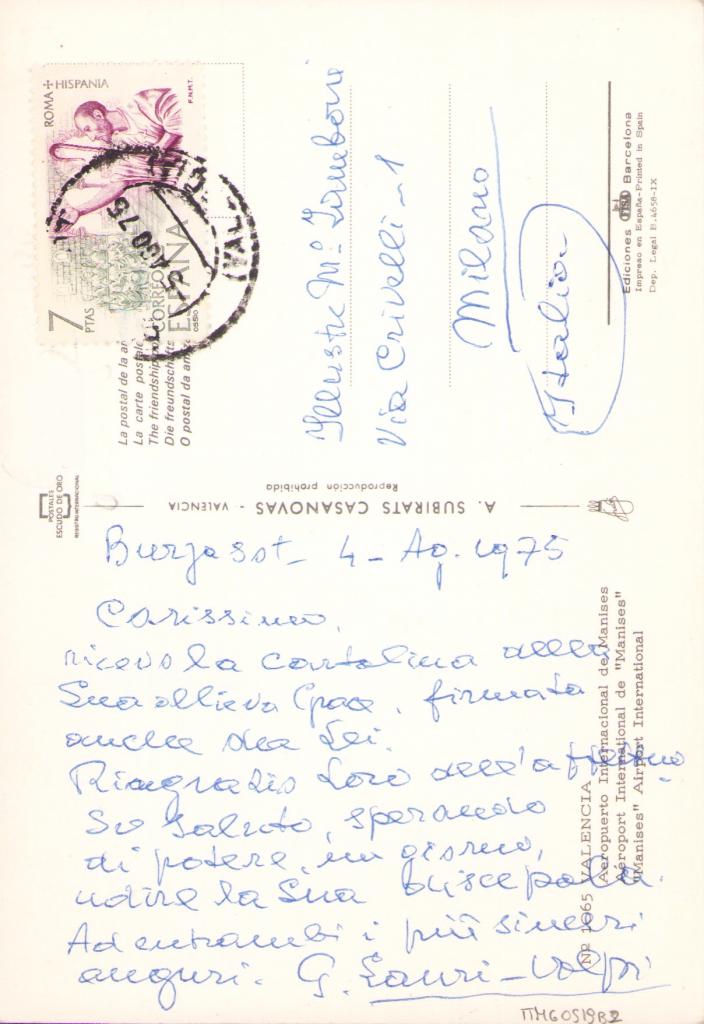 Burjasot - 4 - Ag. 1975
Carissimo,
ricevo la cartolina della
Sua allieva , firmata
anche da Lei.
Ringrazio Loro dell'affettuo
so saluto, sperando
di potere, un giorno,
udire la Sua Discepola.
Ad entrambi i più sinceri
auguri. G. Lauri-Volpi
Illustre M.º
Via Crivelli - 1
Milano
Italia
ROMA + HISPANIA
F.N.M.T.
7 PTAS
CORREOS
ESPAÑA
AGO 75
(VAL
La postal de la
La carte postale
The friendship
Die freundschafts
O postal da
POSTALES
ESCUDO DE ORO
REGISTRO INTERNACIONAL
A. SUBIRATS CASANOVAS - VALENCIA
Reproducción prohibida
Ediciones Barcelona
Impreso en España-Printed in Spain
Dep. Legal B.4658-IX
Nº 1065 VALENCIA
Aeropuerto Internacional de Manises
Aéroport International de "Manises"
"Manises" Airport International